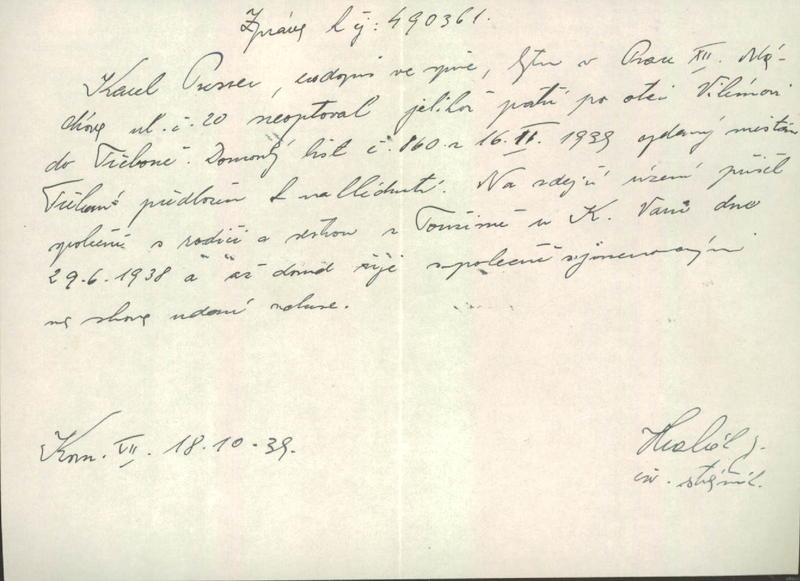 Zpráva k čj: 490361.
Karel Presser, totožný ve spise, bytem v Praze XII. Má-
chova ul. č. 20 neoptoval jelikož patří po otci Vilémovi
do Třeboně. Domovský list č. 160 z 16. II. 1939 vydaný městem
Třeboň předložen k nahlédnutí. Na zdejší území přišel
společně s rodiči a sestrou z Toužimě u K. Varů dne
29.6.1938 a až dosud žije společně s jmenovanými
na shora udané adrese.
Kom. VII. 18.10.39.